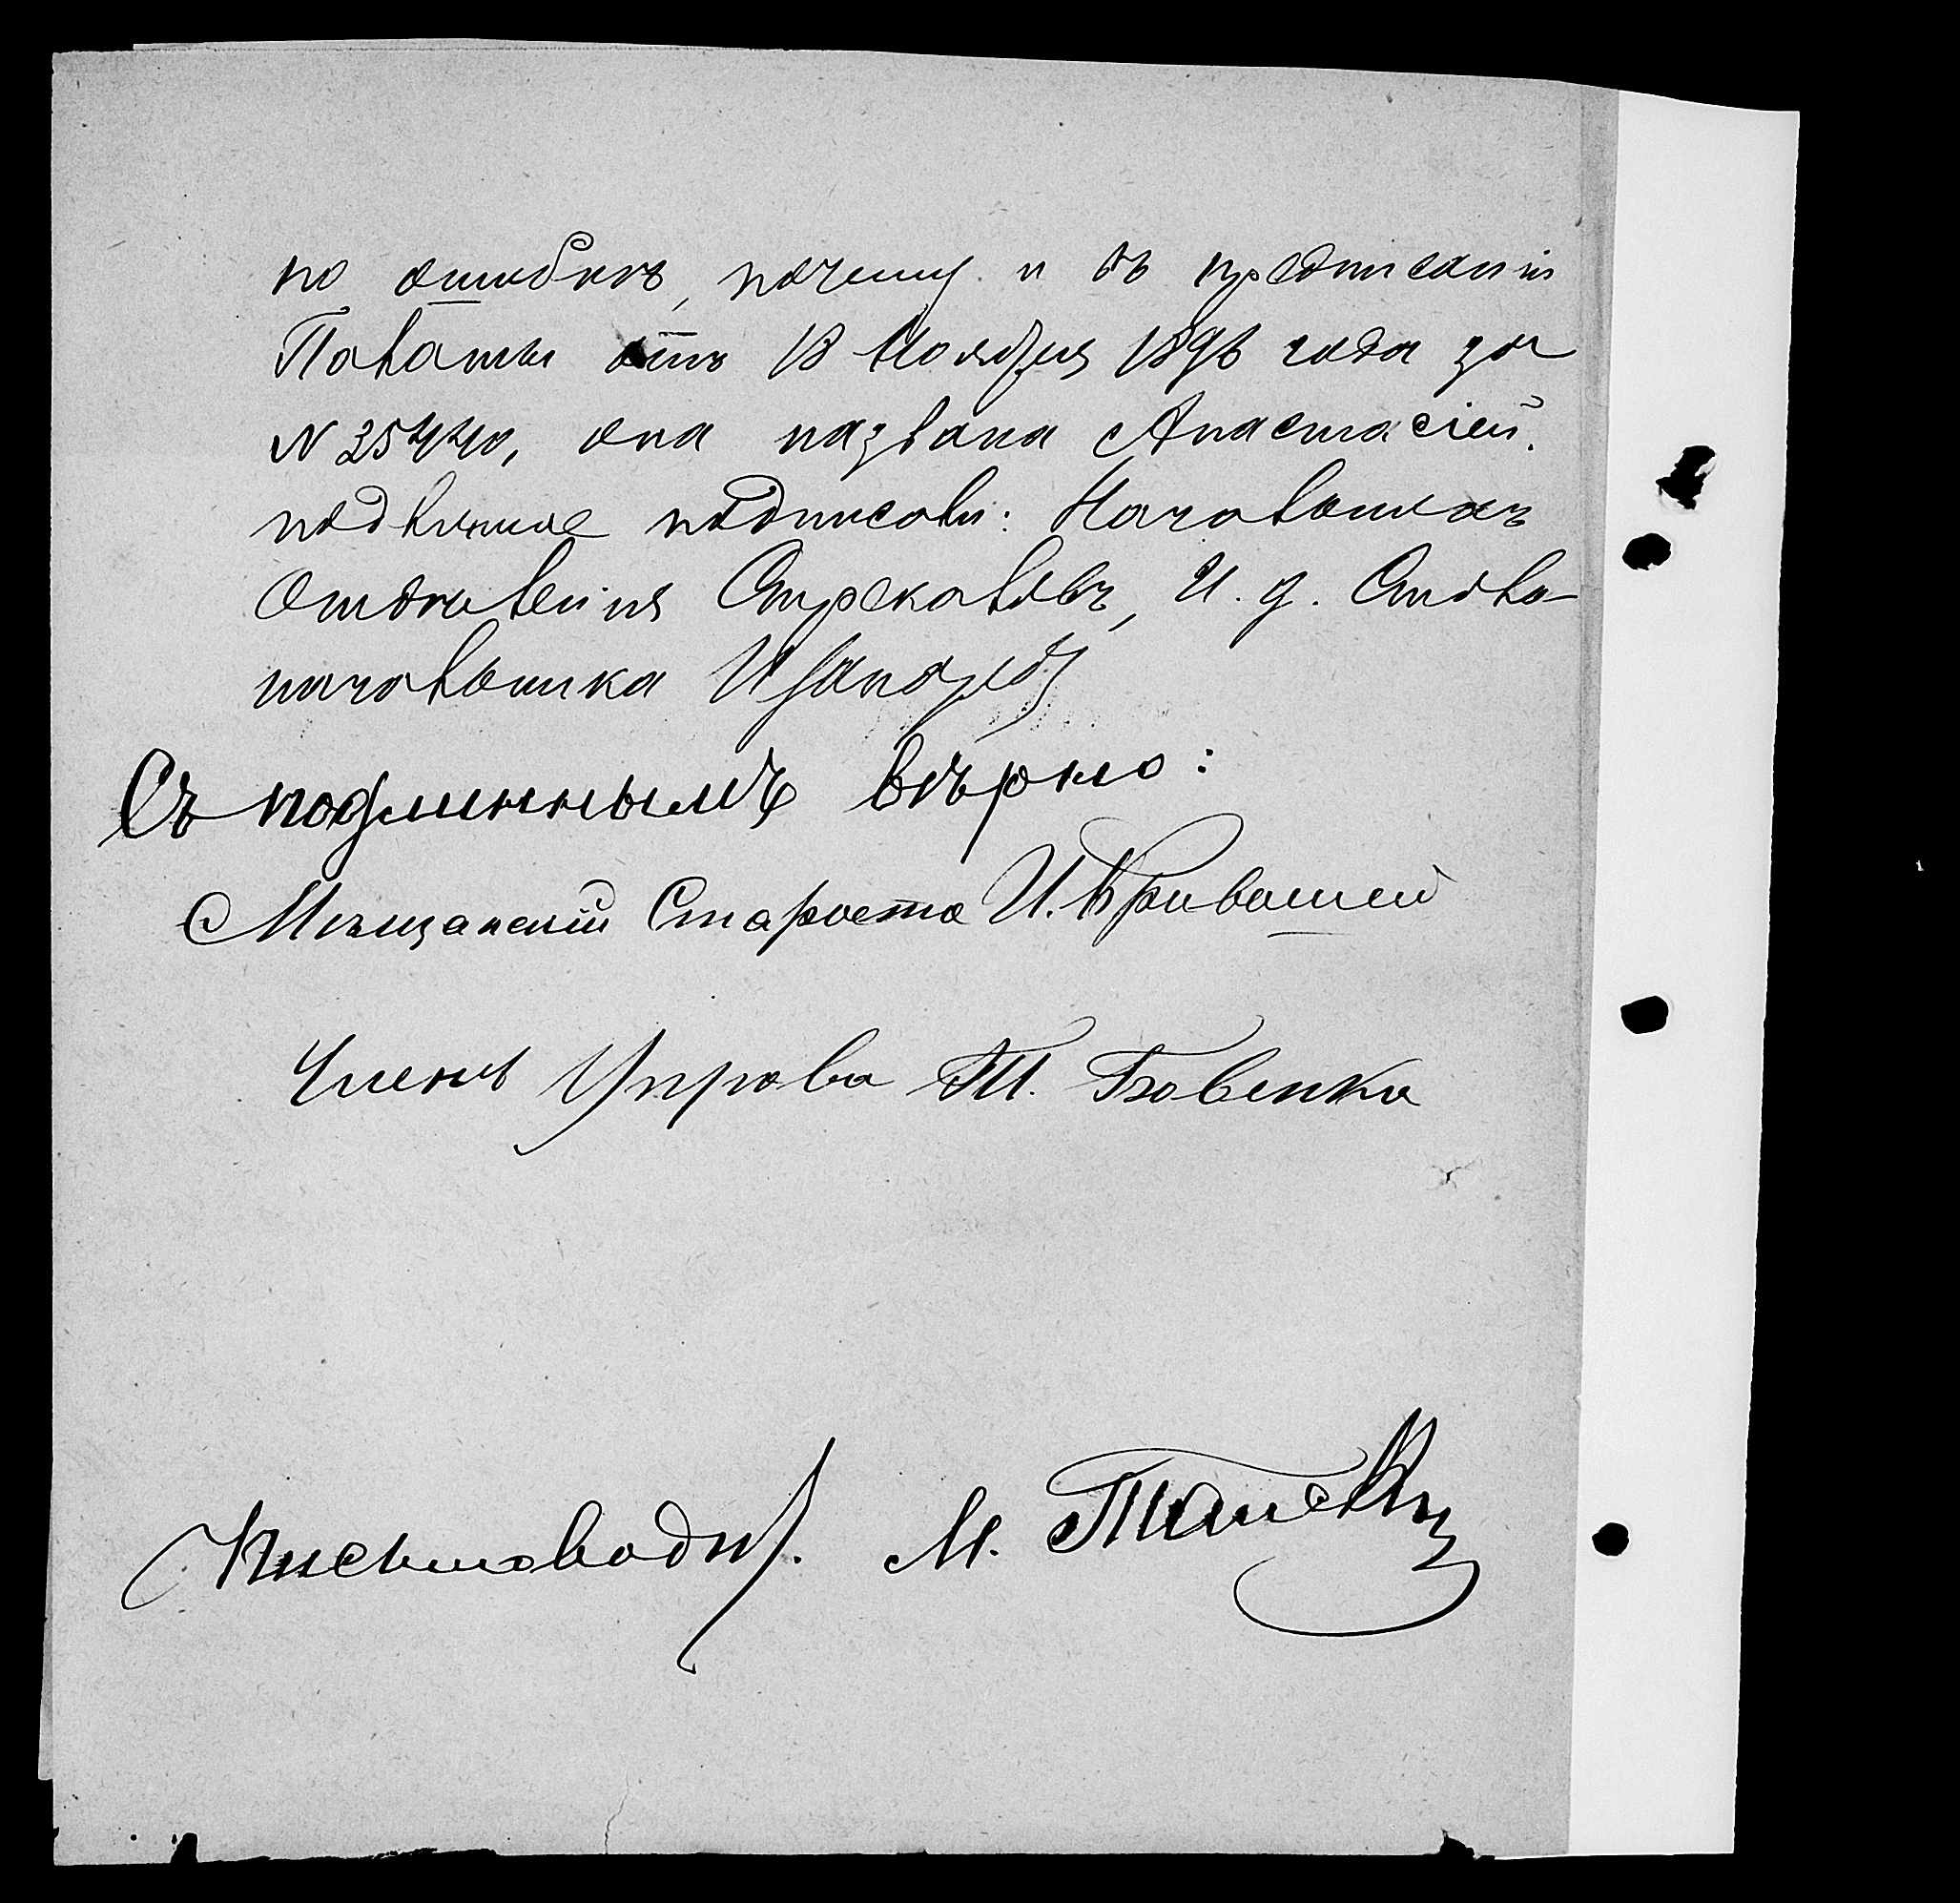 по ошибкѣ, почему и въ предписаніи
Палаты отъ 18 Ноября 1896 года за
№ 25440, она названа Анастасіей.
подлинное подписали: Начальникъ
Отдѣленія Стрекаловъ, И. д. Столо-
начальника
Съ подлиннымъ вѣрно:
Мѣщанскій Староста И. Кривошей
Членъ Управы Т. Бовенко
Письмоводит. М.